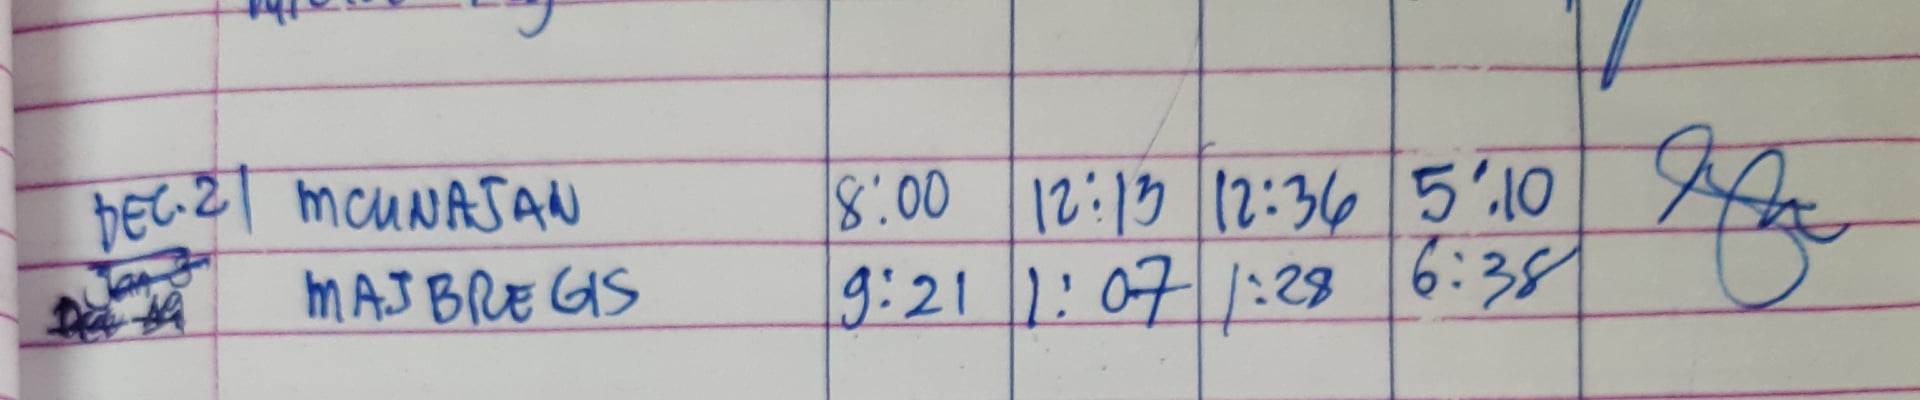 DEC. 21 MCUNAJAN 8:00 12:13 12:36 5:10
Jan 3 MAJBREGIS 9:21 1:07 1:28 6:38